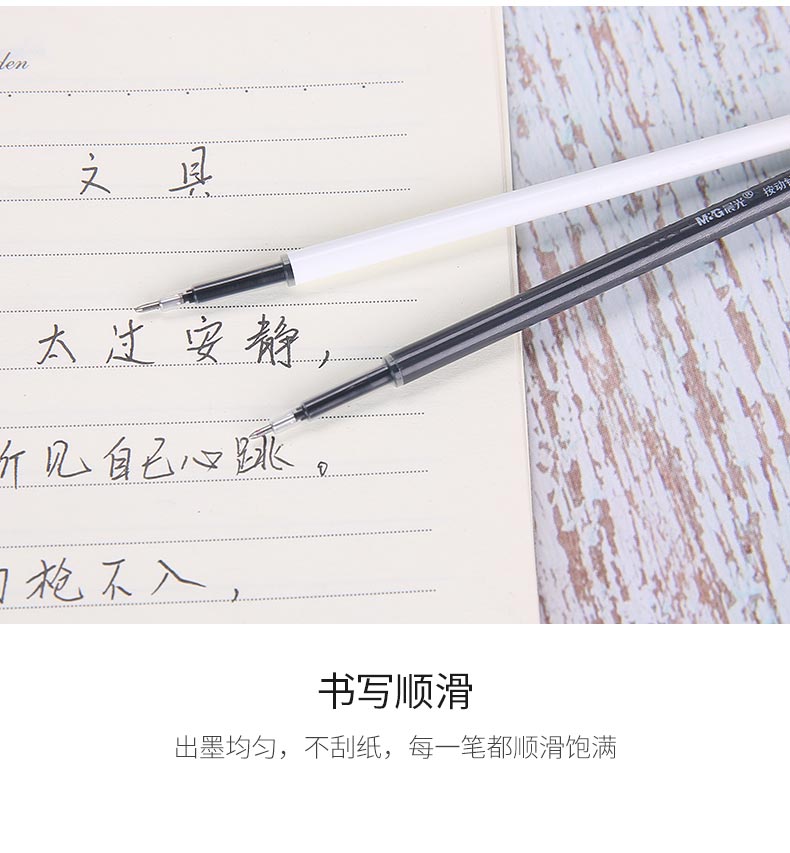 den
文具
M&G晨光® 按动
太过安静，
听见自己心跳。
枪不入，
书写顺滑
出墨均匀，不刮纸，每一笔都顺滑饱满